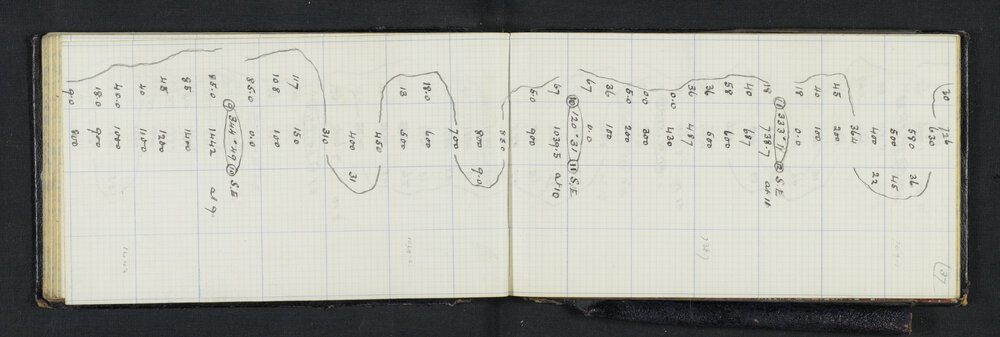 37
726
30 630
590 36
500 45
400 22
364
45 200
40 100
18 0.0
11 333°11 12 S.E
18 738.7 at 11
40 687
58 600
36 500
36 487
0.0 430
0.0 300
5.0 200
36 100
67 0.0
10 120°31 11 S.E
67 1039.5 at 10
5.0 900
850
800 9.0
700
18.0 600
13 500
450
400 31
310
117 150
108 100
85.0 0.0
9 344°49 10 S.E
85.0 1442 at 9
85 1400
45 1200
40 1100
40.0 1000
18.0 900
9.0 800